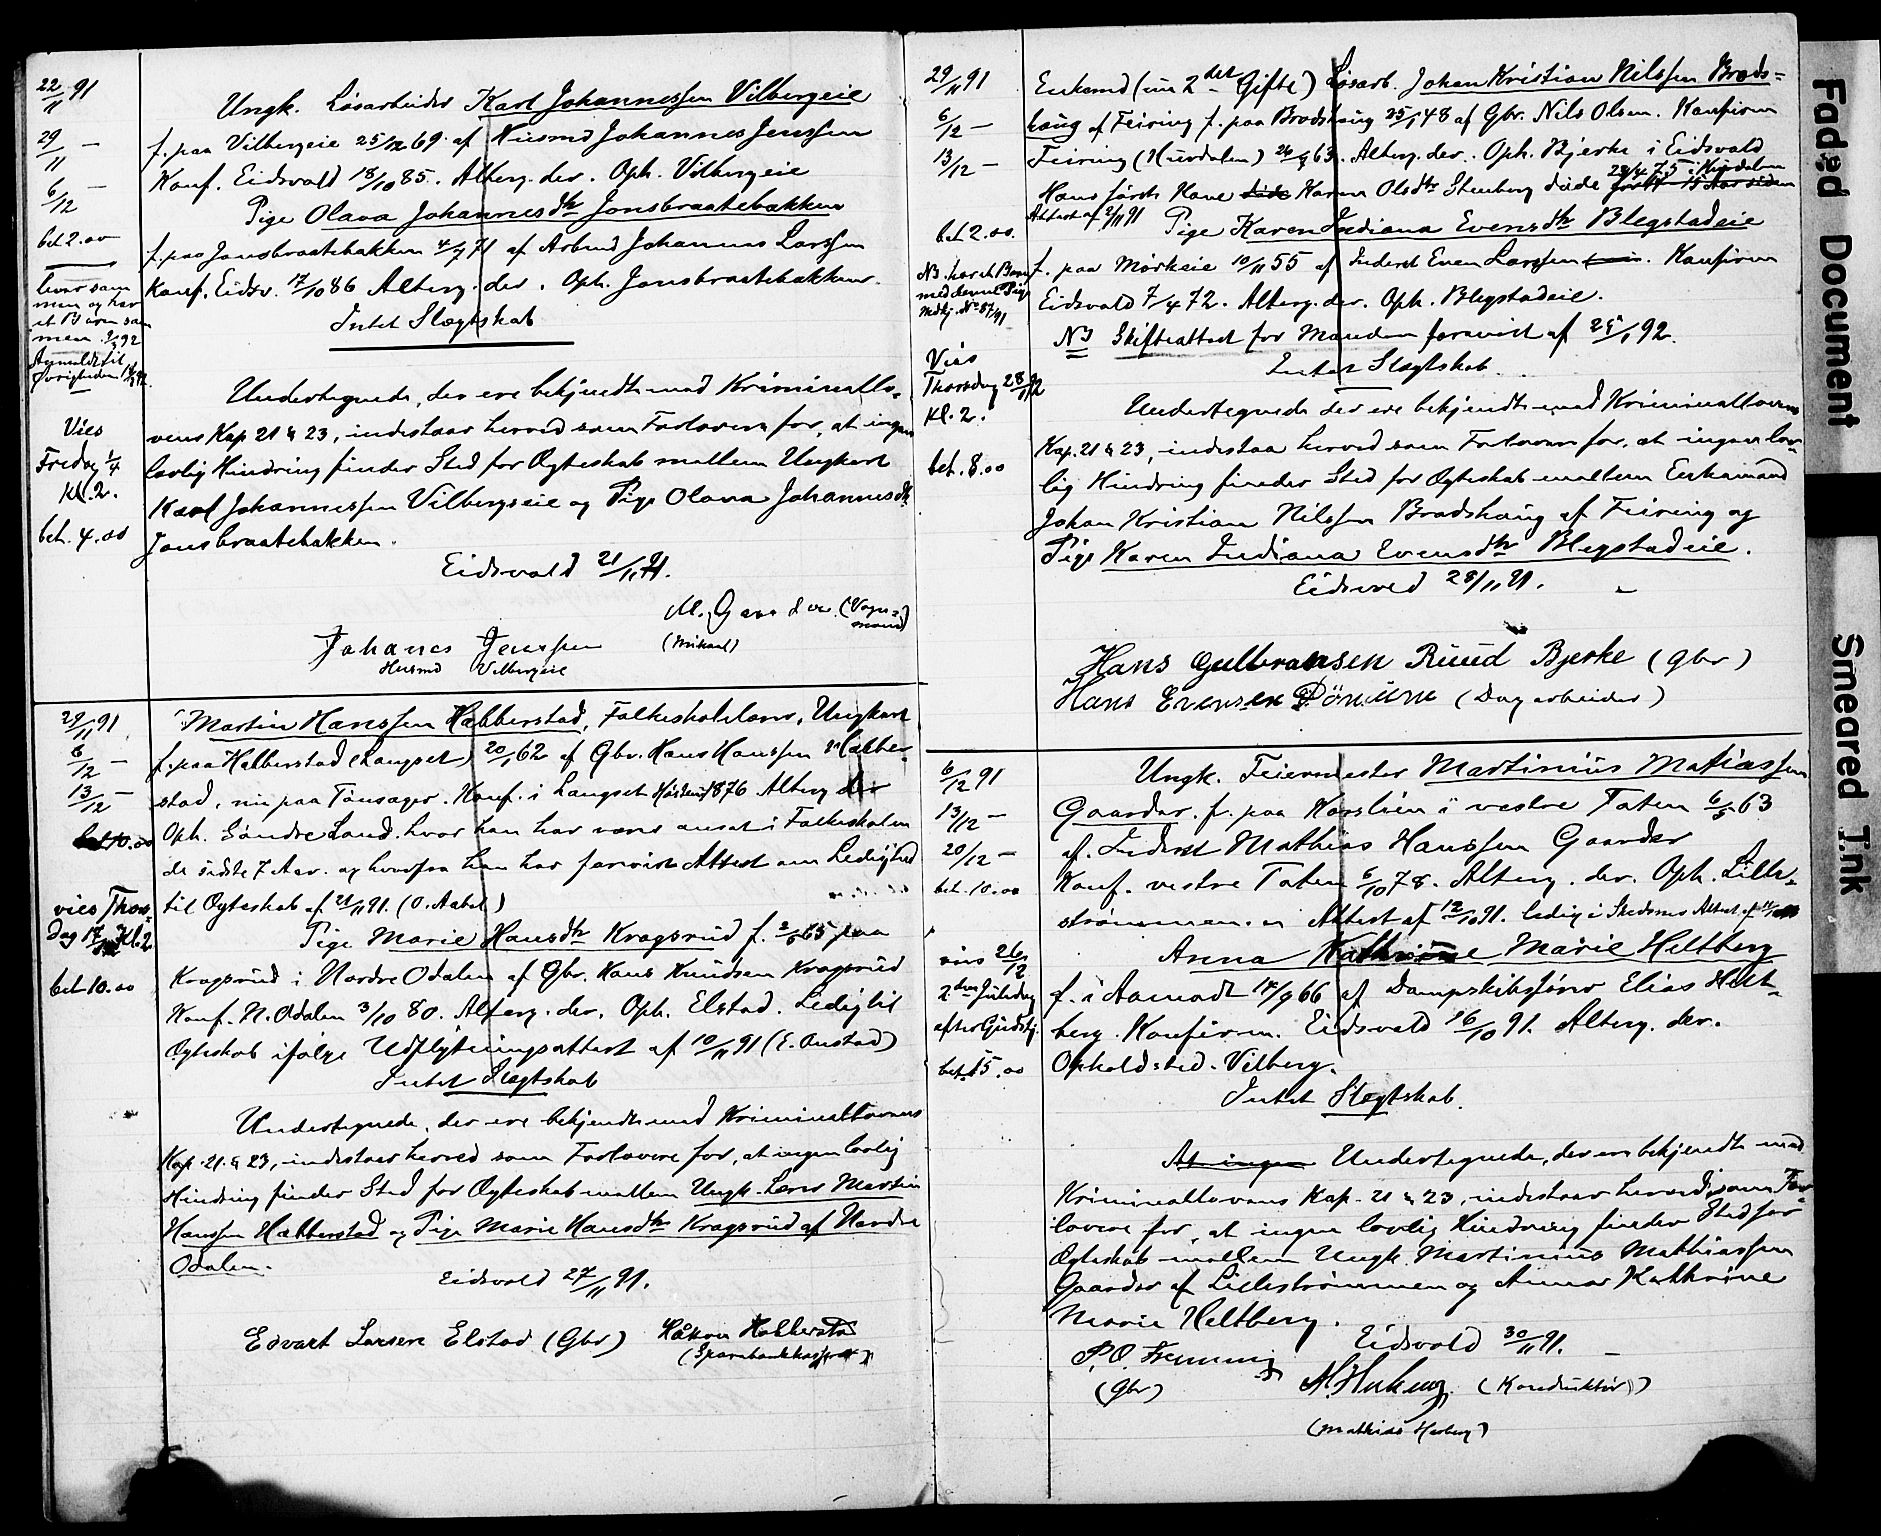 22/11 91
29/11 —
6/12 —
bet 2.00
lever sam
men og har
et Barn sam
men.
Anmeldt til
Øvrigheden
Vies
Fredag 1/4
Kl. 2.
bet. 4.00
Ungk. Løsarbeider Karl Johannessen Vilbergeie
f. paa Vilbergeie 25/12 69 af Husmd Johannes Jenssen
Konf. Eidsvold 18/10 85. Alterg. der. Oph. Vilbergeie
Pige Olava Johannesdtr Jonsbraatebakken
f. paa Jonsbraatebakken 4/7 71 af Arbmd Johannes Larssen
Konf. Eidsv. 17/10 86 Alterg. der. Oph. Jonsbraatebakken.
Intet Slægtskab
Undertegnede, der ere bekjendte med Kriminallo-
vens Kap 21 § 23, indestaar herved som Forlovere for, at ingen
lovlig Hindring finder Sted for Ægteskab mellem Ungkarl
Karl Johannessen Vilbergseie og Pige Olava Johannesdtr
Jonsbraatebakken.
Eidsvold 21/11 91.
M. Gaarder. (Vogn-
mand)
Johanes Jenssen (Mikael)
Husmd Vilbergeie
29/11 91
6/12 —
13/12 —
bet 10.00
vies Thors-
dag 17/12 Kl. 2
bet 10.00
Martin Hanssen Habberstad, Folkeskolelærer, Ungkarl
f. paa Habberstad (Langset) 20/1 62 af Gbr. Hans Hanssen Habber-
stad, nu paa Tønsager. Konf. i Langset Høsten 1876 Alterg der
Oph. Søndre Land. hvor han har været ansat i Folkeskolen
de sidste 7 Aar. og hvorfra han har forevist Attest om Ledighed
til Ægteskab af 21/11 91. (O. Aabel)
Pige Marie Hansdtr Kragsrud f. 2/6 65 paa
Kragsrud i Nordre Odalen af Gbr. Hans Knudsen Kragsrud
Konf. N. Odalen 3/10 80. Alterg. der. Oph. Elstad. Ledig til
Ægteskab ifølge Udflytningsattest af 10/11 91 (E. Onstad)
Intet Slægtskab
Undertegnede, der ere bekjendte med Kriminallovens
Kap. 21 § 23, indestaar herved som Forlovere for, at ingen lovlig
Hindring finder Sted for Ægteskab mellem Ungk. Lærer Martin
Hanssen Habberstad og Pige Marie Hansdtr Kragsrud af Nordre
Odalen.
Eidsvold 27/11 91.
Edvart Larsen Elstad (Gbr) Håkon Habberstad
(Sparebankkasserer)
29/11 91
6/12 —
13/12 —
bet 2.00.
NB. har et Barn
med denne Pige
Vies
Thorsdag 28/1 92
Kl. 2.
bet. 8.00
Enkemd (nu 2det Gifte) Løsarb. Johan Kristian Nilssen Brods-
haug af Feiring f. paa Brodshaug 25/1 48 af Gbr. Nils Olsen. Konfirm
Feiring (Hurdalen) 63. Alterg. der. Oph. Bjerke i Eidsvold
Hans første Kone døde Karen Olsdtr Stenberg døde 29/4 75 i Hurdalen
for 15 Aar siden
Attest af 2/11 91 Pige Karen Indiana Evensdtr Blegstadeie
f. paa Mørkeie 10/11 55 af Inderst Even Larssen. Konfirm
Eidsvold 7/4 72. Alterg. der. Oph. Blegstadeie.
NB Skifteattest for Manden forevist af 25/1 92.
Intet Slægtskab.
Undertegnede der ere bekjendte med Kriminallovens
Kap. 21 § 23, indestaa herved som Forlovere for, at ingen lov-
lig Hindring finder Sted for Ægteskab mellem Enkemand
Johan Kristian Nilssen Brodshaug af Feiring og
Pige Karen Indiana Evensdtr Blegstadeie.
Eidsvold 28/11 91.
Hans Gulbransen Ruud Bjerke (gbr)
Hans Evensen (Dagarbeider)
6/12 91
13/12 —
20/12 —
bet. 10.00
vies 26/12
2den Juledag
efter Gudstj.
bet. 15.00
Ungk. Feiermester Martinius Matiassen
Gaarder. f. paa i vestre Toten 6/5 63
af. Inderst Mathias Hanssen Gaarder
Konf. vestre Toten 6/10 78. Alterg. der. Oph. Lille-
strømmen. Attest af 12/10 91. ledig i Skedsmo Attest af
Anna Kathrine Marie Heltberg
f. i Aamodt 18/9 66 af Dampskibsfører Elias Helt-
berg. Konfirm. Eidsvold 16/10 91. Alterg. der.
Opholdsted. Vilberg.
Intet Slægtskab.
At ingen Undertegnede, der er bekjendte med
Kriminallovens Kap. 21 § 23, indestaar herved som For-
lovere for, at ingen lovlig Hindring finder Sted for
Ægteskab mellem Ungk. Martinius Mathiassen
Gaarder af Lillestrømmen og Anna Kathrine
Marie Heltberg.
Eidsvold 30/11 91.
P. O. Fremming
(Gbr) (Konduktør)
(Mathias Herberg)
Faded Document
Smeared Ink